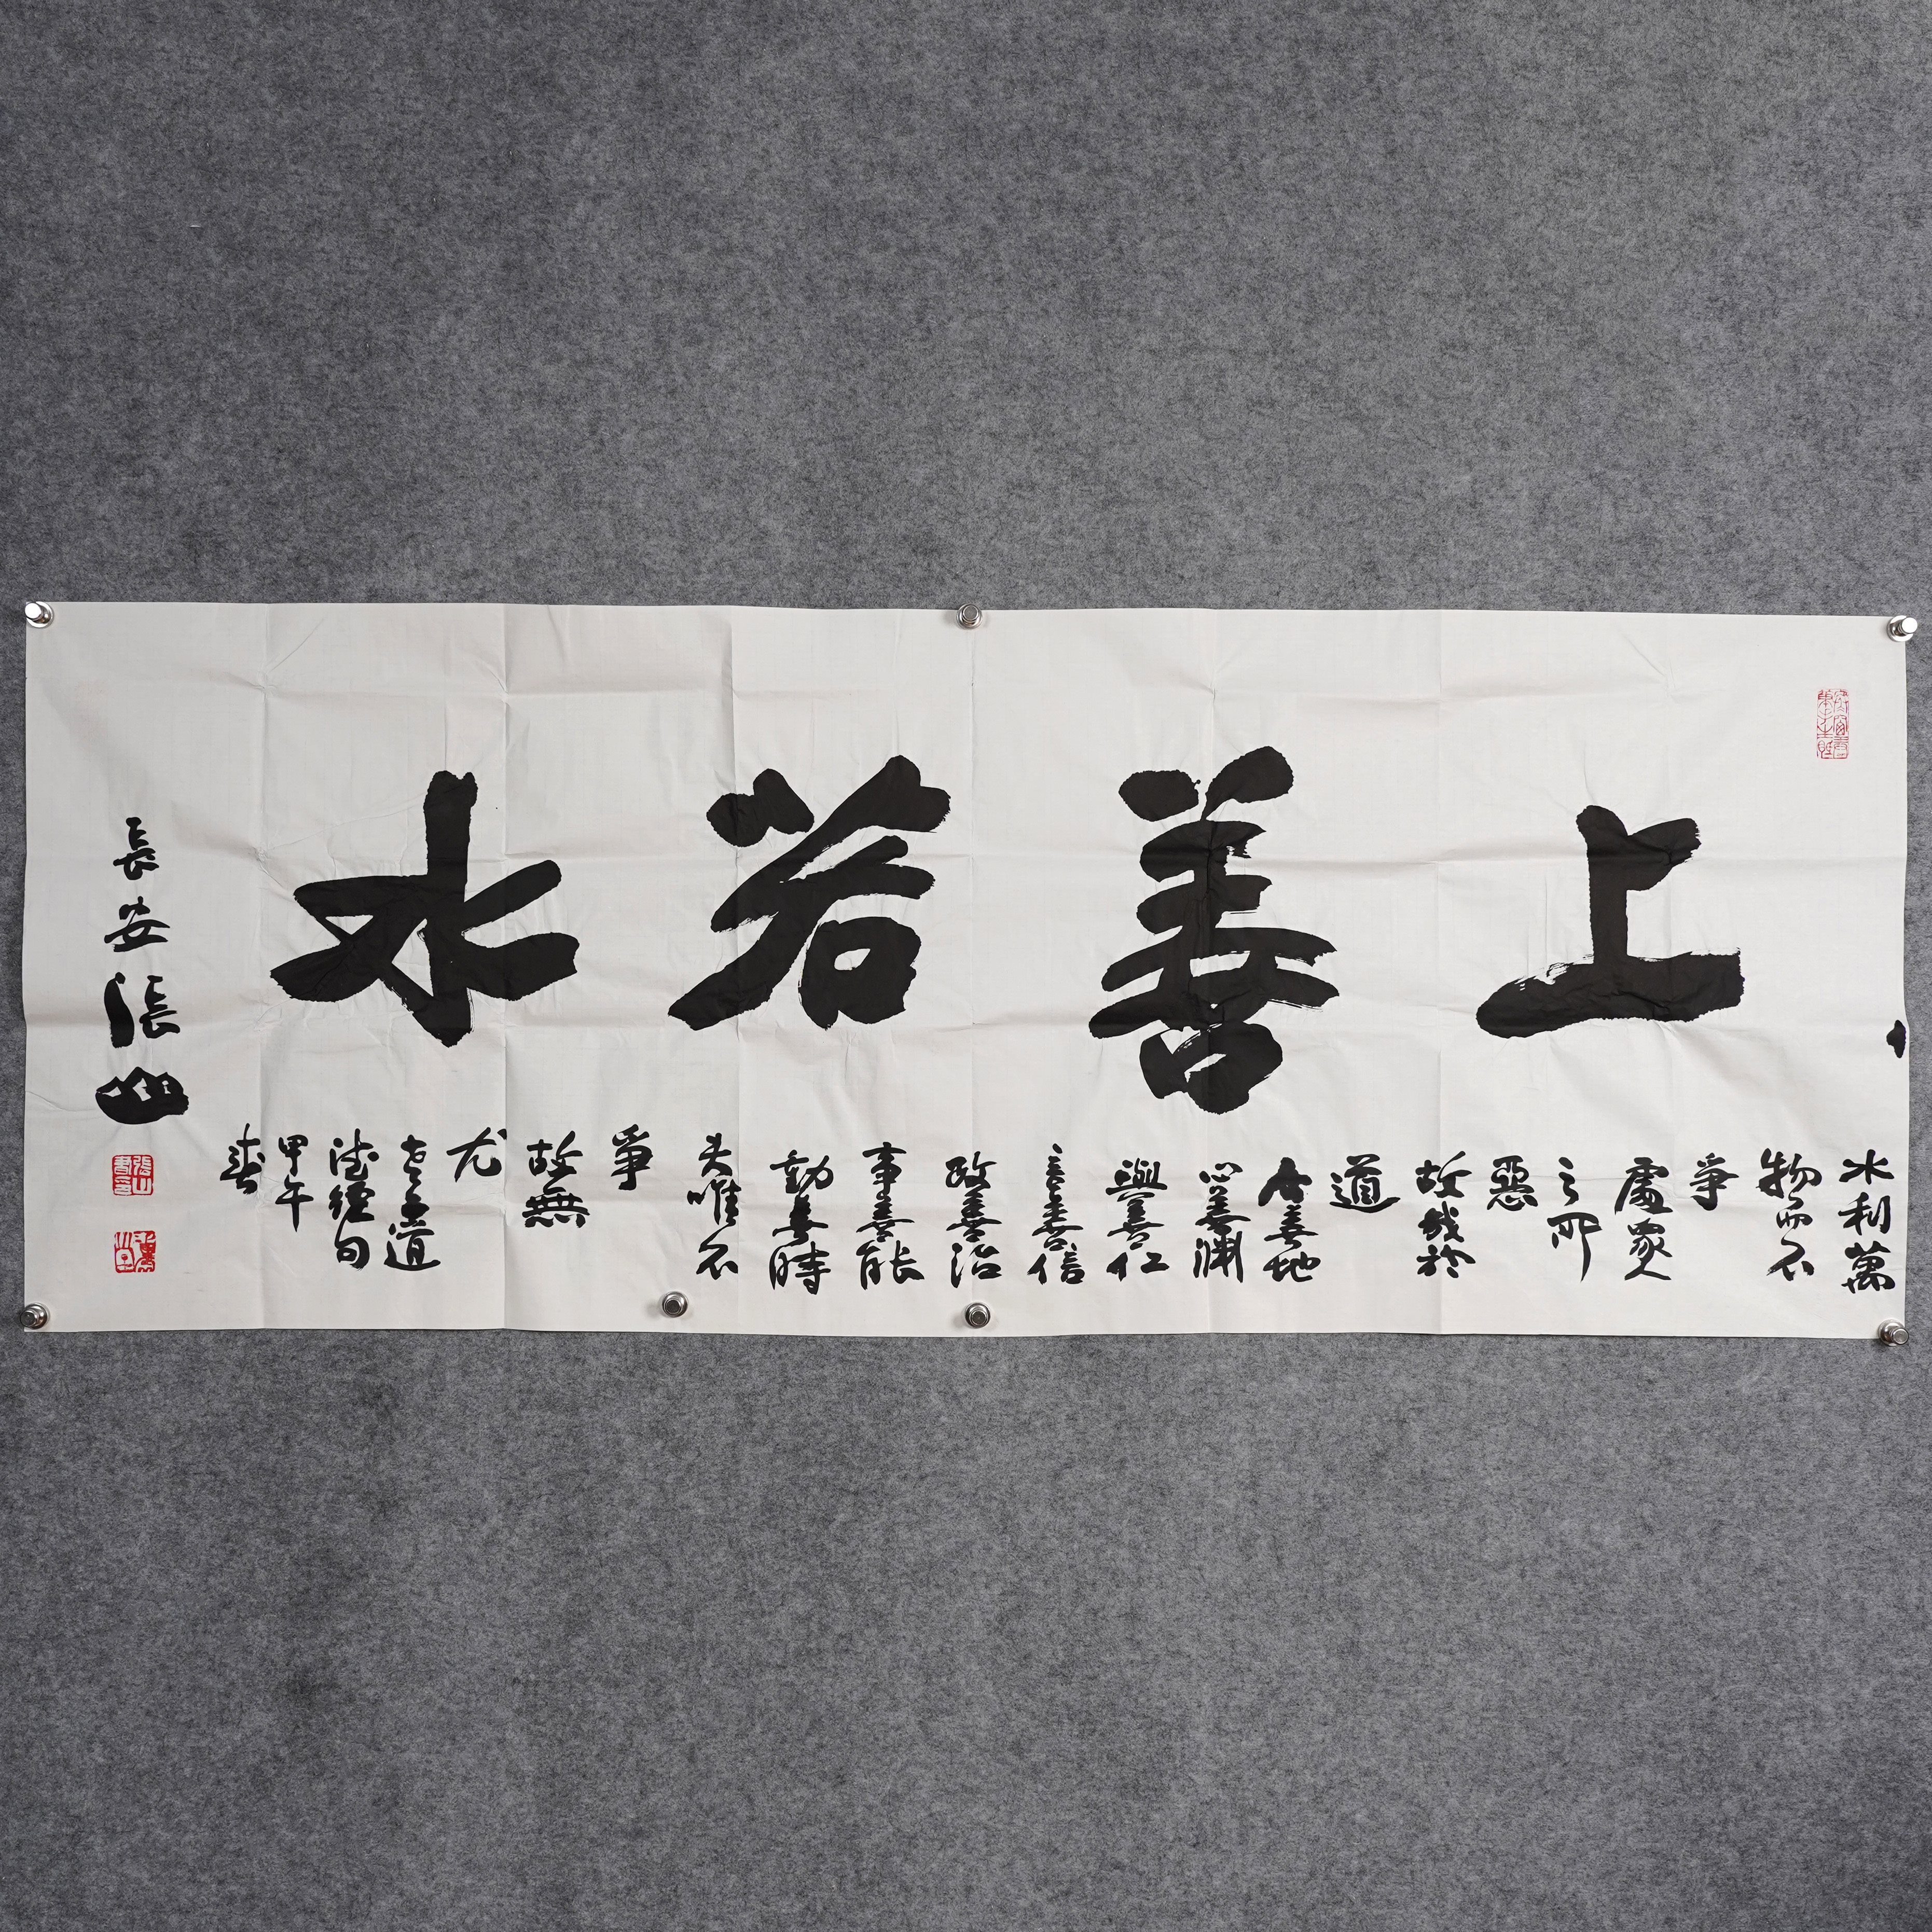 上善若水
水利萬
物而不
爭
處眾人
之所
惡
故幾於
道
居善地
心善淵
與善仁
言善信
政善治
事善能
動善時
夫唯不
爭
故無
尤
老子道
德經句
甲午
春
長安張山